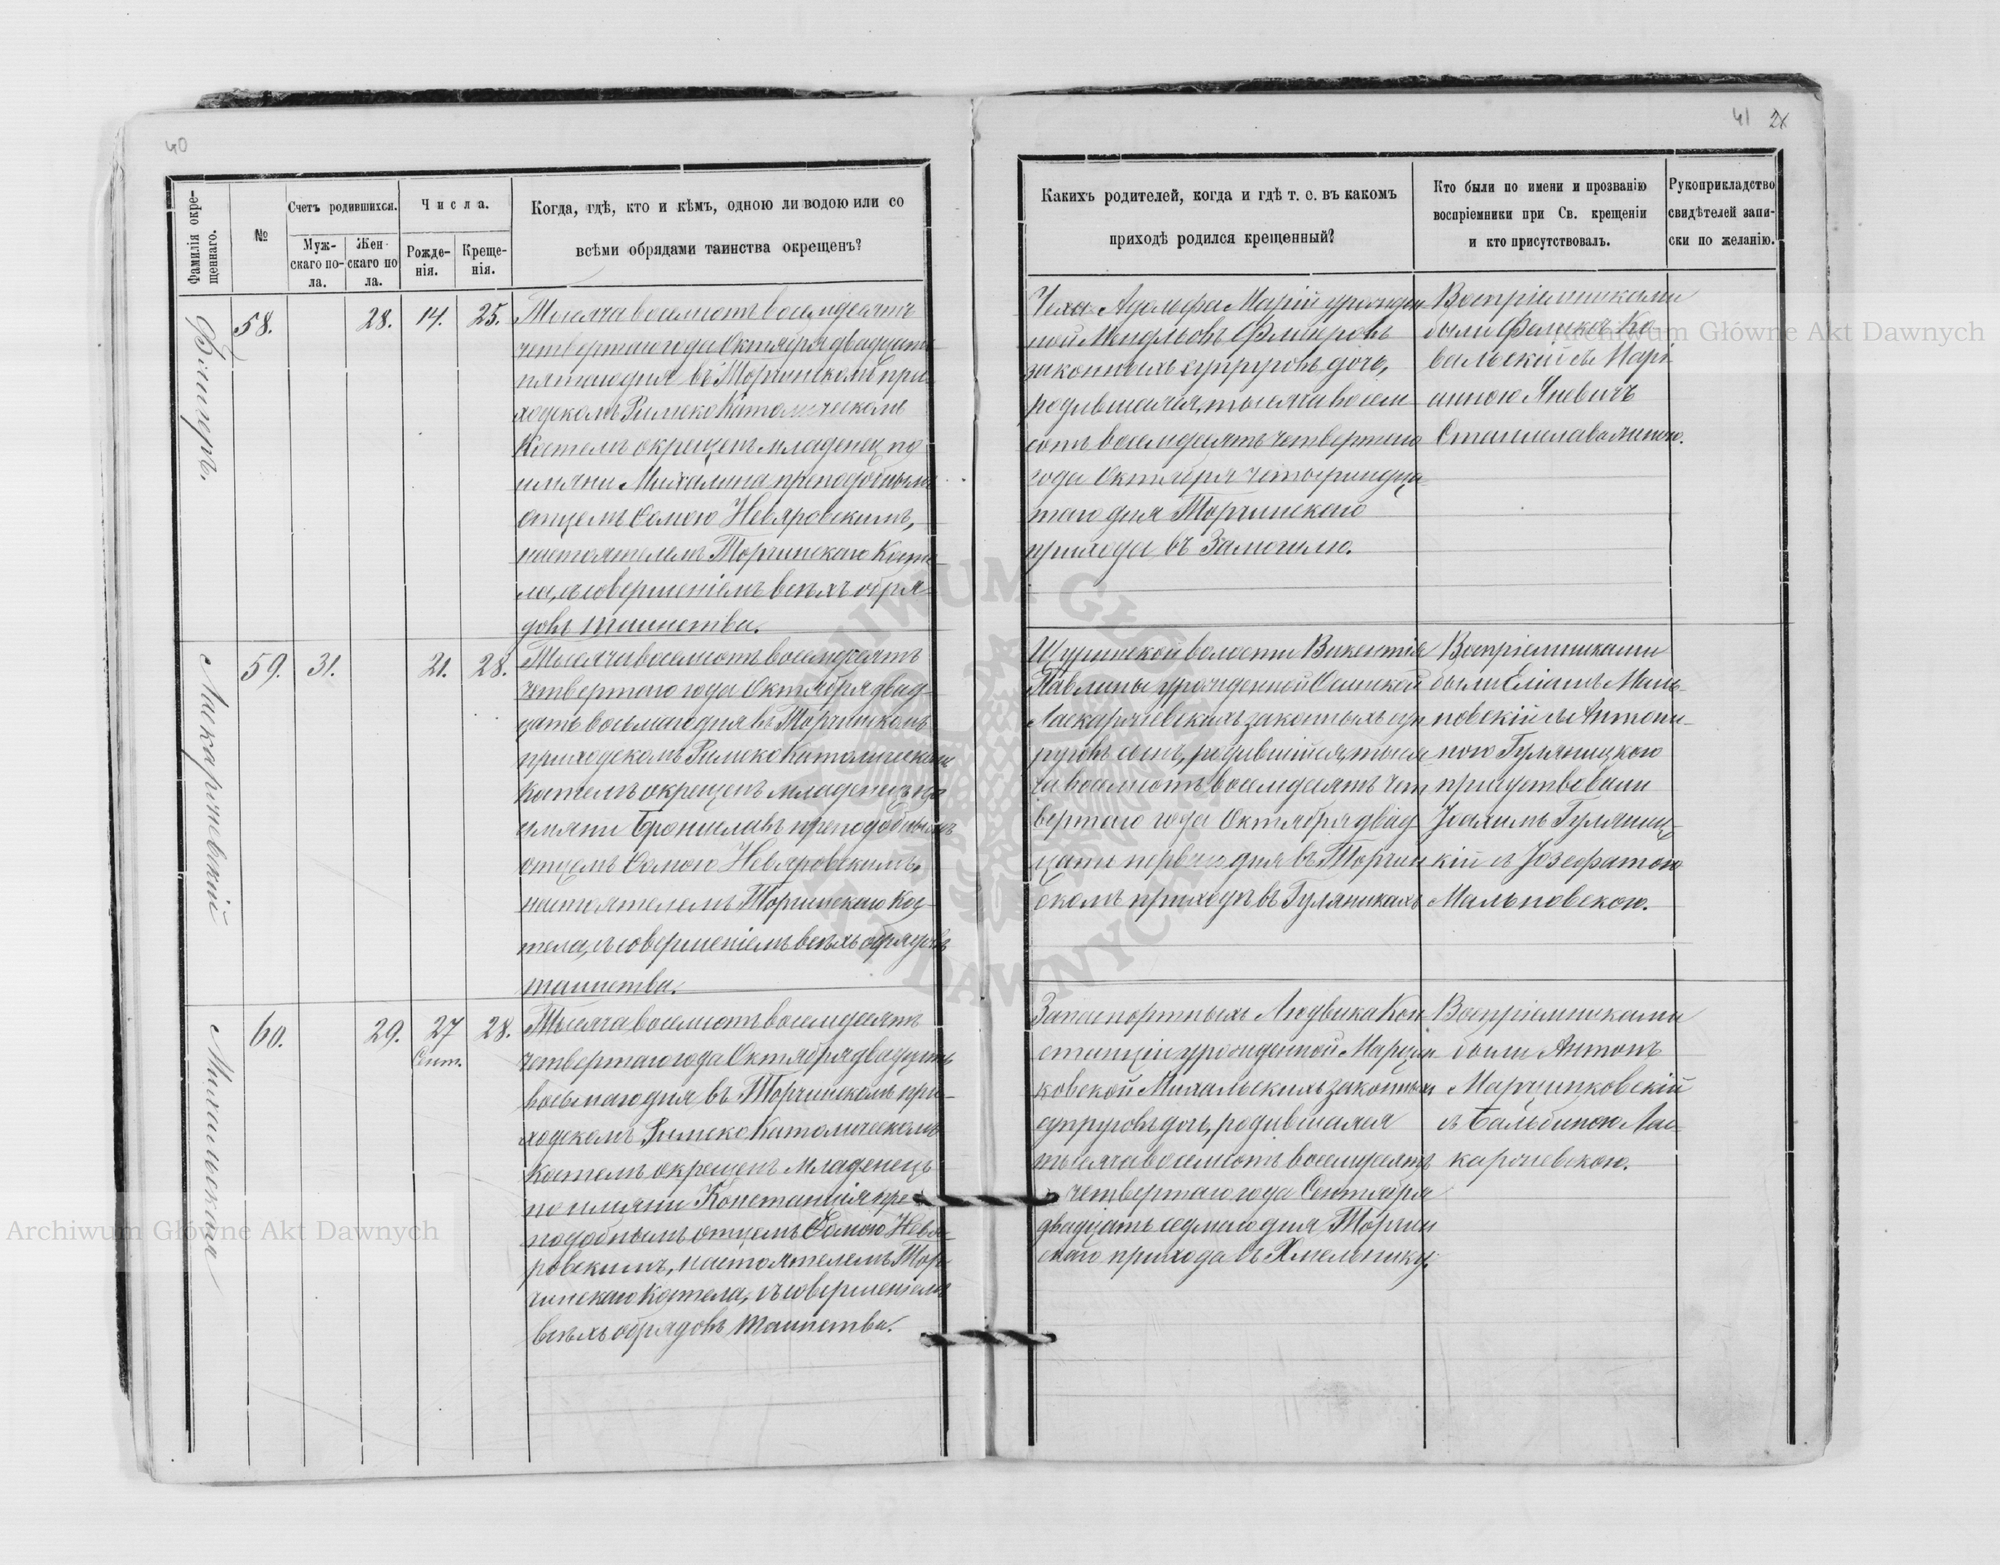 40
Фамилія окре-
щеннаго.
№
Счетъ родившихся.
Муж-
скаго по-
ла.
Жен-
скаго по
ла.
Числа.
Рожде-
нія.
Креще-
нія.
Когда, гдѣ, кто и кѣмъ, одною ли водою или со
всѣми обрядами таинства окрещенъ?
58.
28.
14.
25.
Тысяча восемсотъ восемдесятъ
четвертаго года Октября двадцать
пятаго дня въ Торчинскомъ при-
ходскомъ Римско Католическомъ
Костелѣ окрещенъ младенец по
имяни Михалина преподобнымъ
отцемъ Ѳомою Невяровскимъ,
настоятелемъ Торчинскаго Косте-
ла, съ совершеніемъ всѣхъ обря-
довъ таинства.
Ласкарже́вскій
59.
31.
21.
28.
Тысяча восемсотъ восемдесятъ
четвертаго года Октября двад-
цать восьмаго дня въ Торчинскомъ
приходскомъ Римско Католическомъ
Костелѣ окрещенъ младенецъ по
имяни Брониславъ преподобнымъ
отцемъ Ѳомою Невяровскимъ,
настоятелемъ Торчинскаго Кос-
тела, съ совершеніемъ всѣхъ обрядовъ
таинства.
Михальская
60.
29.
27
Сент.
28.
Тысяча восемсотъ восемдесятъ
четвертаго года Октября двадцать
восьмаго дня въ Торчинскомъ при-
ходскомъ Римско Католическомъ
Костелѣ окрещенъ младенецъ
по имяни Констанція пре-
подобнымъ отцемъ Ѳомою Невя-
ровскимъ, настоятелемъ Тор-
чинскаго Костела, съ совершеніемъ
всѣхъ обрядовъ таинства.
41
Какихъ родителей, когда и гдѣ т. е. въ какомъ
приходѣ родился крещенный?
Кто были по имени и прозванію
воспріемники при Св. крещеніи
и кто присутствовалъ.
Рукоприкладство
свидѣтелей запи-
ски по желанію.
Чеха Адольфа Маріи урожден
ной
законныхъ супруговъ дочь,
родившаяся, тысяча восем
сотъ восемдесятъ четвертаго
года Октября четырнадца
таго дня Торчинскаго
прихода въ
Воспріемниками
были Феликсъ Ко
вальскій съ Марі
анною Яневичъ
Станиславовною.
Щуринской волости Викентія
Павлины урожденной
Ласкаржевскихъ законныхъ суп
руговъ сынъ, родившійся, тыся
ча восемсотъ восемдесятъ чет
вертаго года Октября двад
цать перваго дня въ Торчин
скомъ приходѣ въ Гуляникахъ
Воспріемниками
были Еліашъ Маль-
новскій съ Антони-
ною Гуляницкою
присутствовали
Іоахимъ Гуляниц-
кій съ Іозефатою
Мальновскою.
Запаспортныхъ Людвика Кон
станціи урожденной Марцин
ковской Михальскихъ законныхъ
супруговъ дочь, родившаяся
тысяча восемсотъ восемдесятъ
четвертаго года Сентября
двадцать седмаго дня Торчин
скаго прихода въ Хмельнику.
Воспріемниками
были Антонъ
Марцинковскій
съ Бальбиною Лас
каржевскою.
Archiwum Główne Akt Dawnych
Archiwum Główne Akt Dawnych